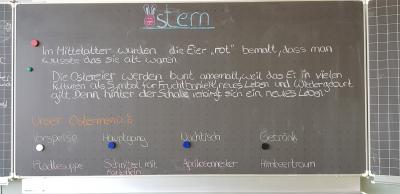 Ostern
Im Mittelalter wurden die Eier "rot" bemalt, dass man
wusste das sie alt waren.
Die Ostereier werden bunt angemalt, weil das Ei in vielen
Kulturen als Symbol für Fruchtbarkeit, neues Leben und Wiedergeburt
gilt. Denn hinter der Schale verbirgt sich ein neues Leben
Unser Ostermenü:
Vorspeise Hauptgang Nachtisch Getränk
Flädlesuppe Schnitzel mit Aprikosennester Himbeertraum